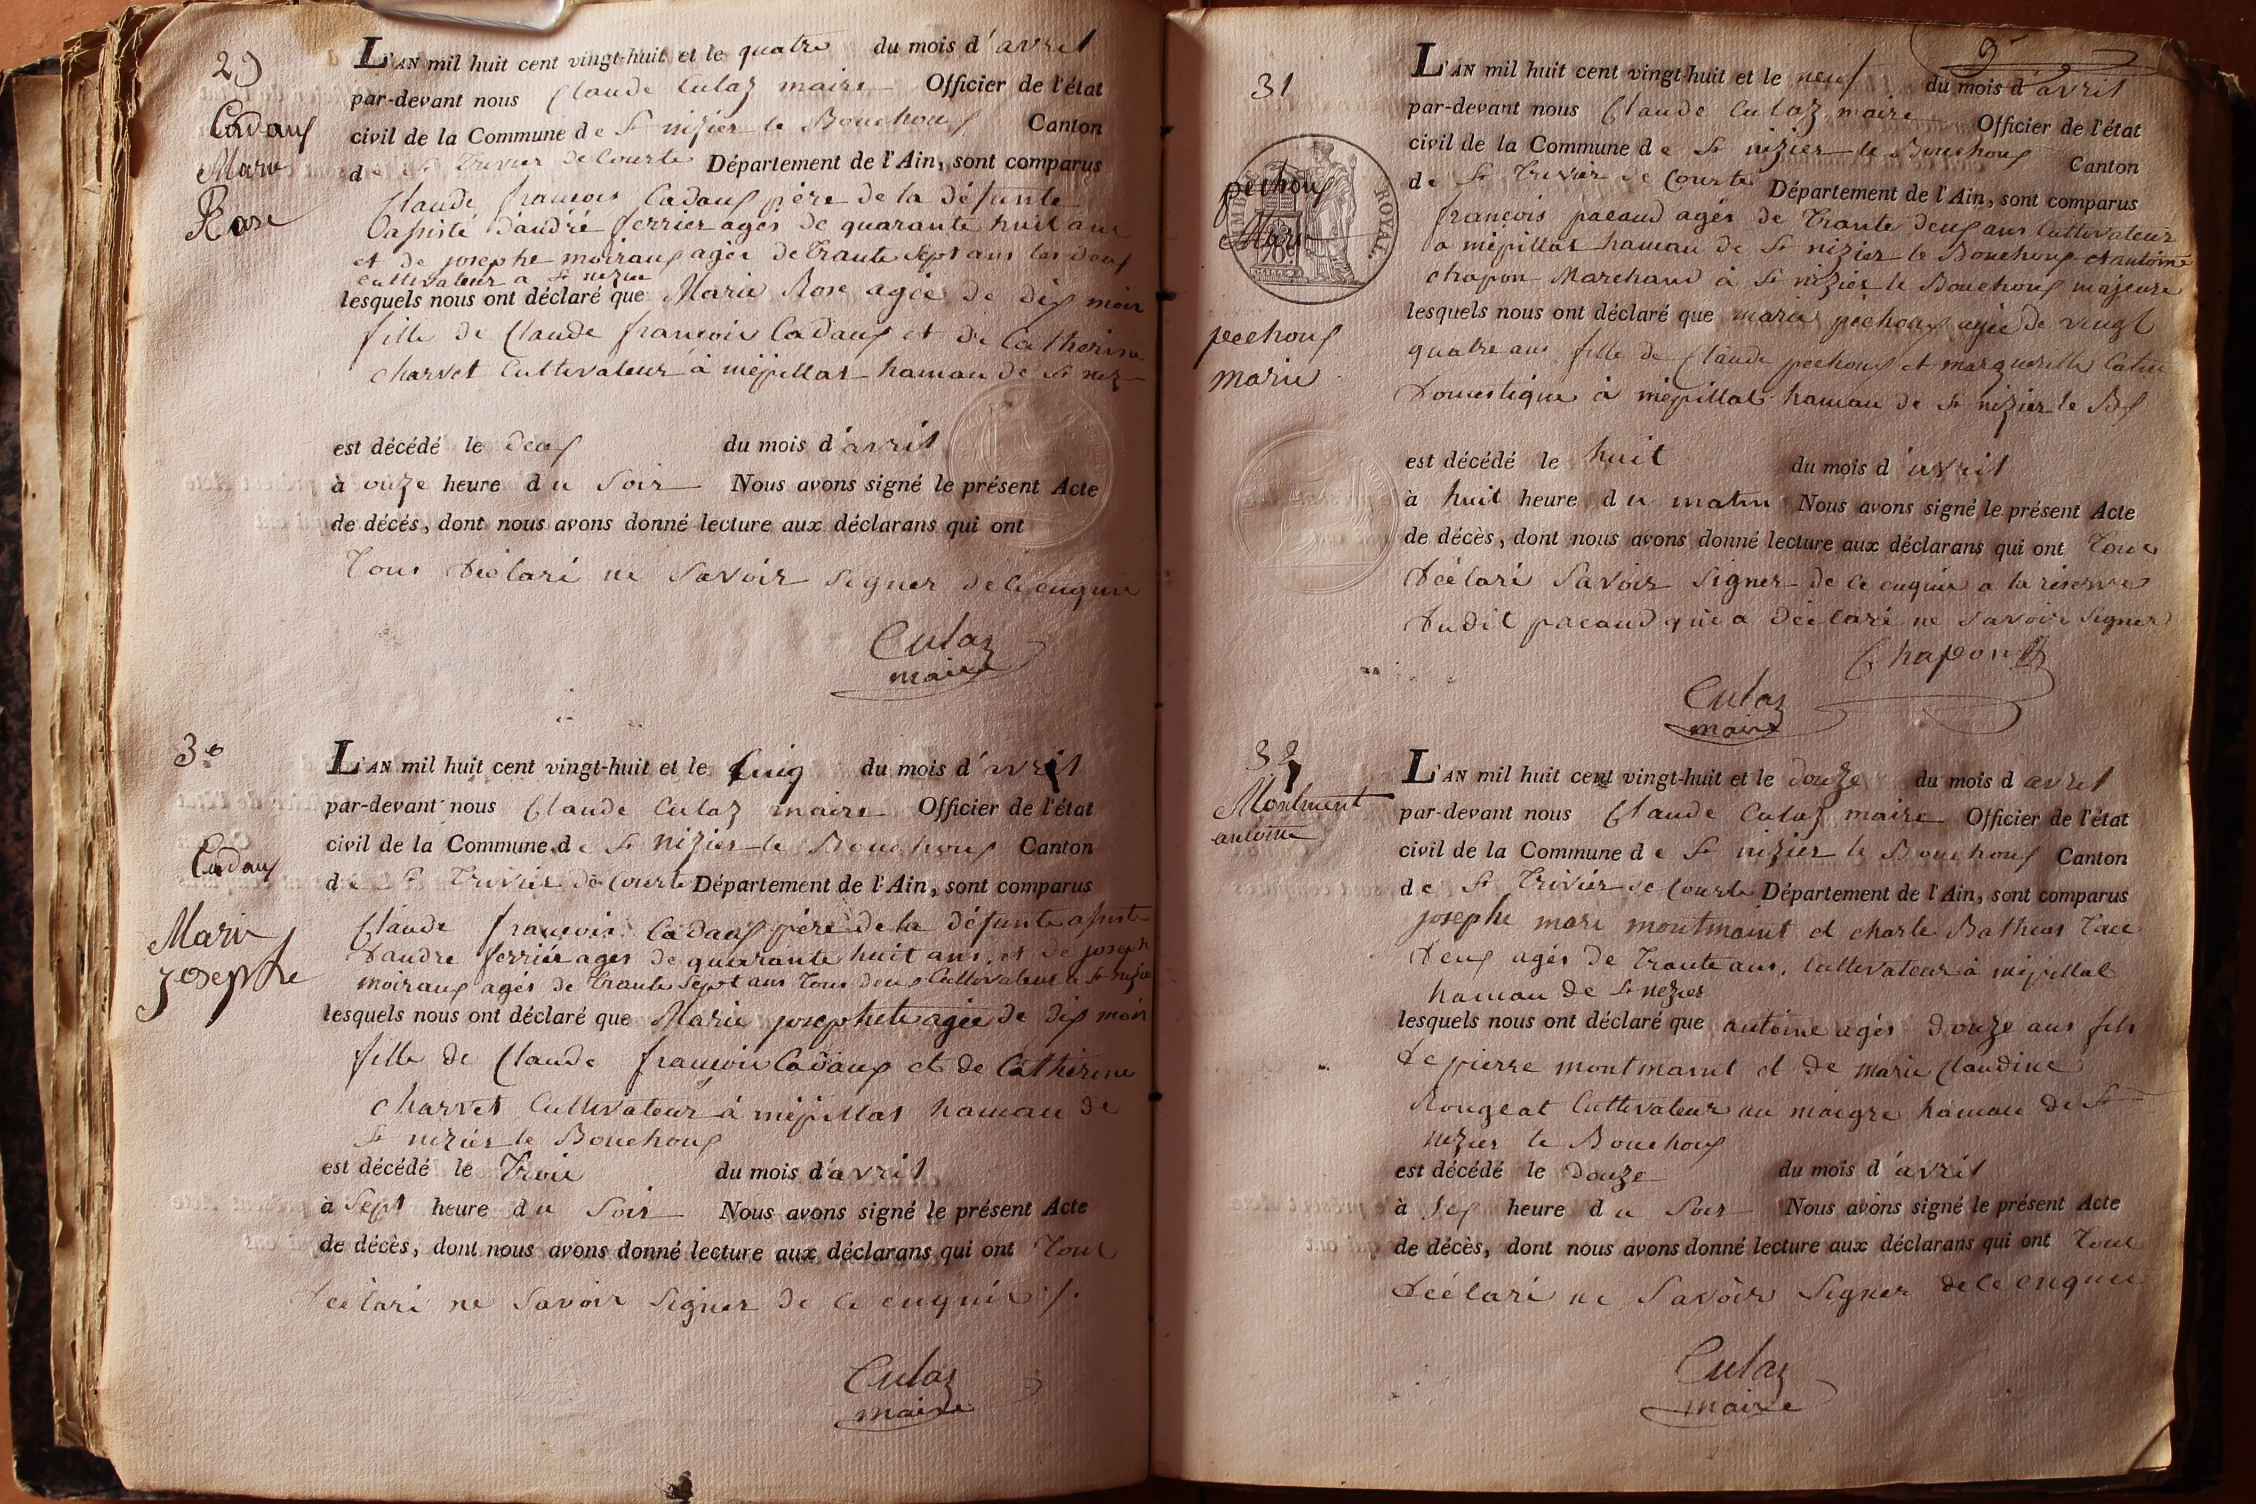 29
Cadaux
Marie
Rose
L'AN mil huit cent vingt-huit et le quatre du mois d'avril
par-devant nous Claude Culaz maire Officier de l'état
civil de la Commune de St nizier le Bouchoux Canton
de St Trivier de Courte Département de l'Ain, sont comparus
Claude françois Cadaux père de la défunte
d'andré ferrier agés de quarante huit ans
et de josephe moiraux agée de trante sept ans les deux
cultivateur a St nizier
lesquels nous ont déclaré que Marie Rose agée de dix mois
fille de Claude françois Cadaux et de Catherine
charvet Cultivateur à mépillat hamau de St niz
est décédé le deux du mois d'avril
à onze heure du Soir Nous avons signé le présent Acte
de décés, dont nous avons donné lecture aux déclarans qui ont
Tous déclaré ne Savoir Signer de Ce enquis
Culaz
maire
30
Cadaux
Marie
josephe
L'AN mil huit cent vingt-huit et le Cinq du mois d'avril
par-devant nous Claude Culaz maire Officier de l'état
civil de la Commune de St nizier le Bouchoux Canton
de St Trivier de Courte Département de l'Ain, sont comparus
Claude françois Cadaux père de la défunte asisté
d'andre ferrier ages de quarante huit ans, et de joseph
moiraux agés de trante Sept ans Tous deux Cultivateur a St nizier
lesquels nous ont déclaré que Marie josephete agée de dix mois
fille de Claude françois Cadaux et de Catherine
charvet Cultivateur à mépillat hamau de
St nizier le Bouchoux
est décédé le Trois du mois d'avril
à Sept heure du Soir Nous avons signé le présent Acte
de décès, dont nous avons donné lecture aux déclarans qui ont Tous
déclaré ne Savoir Signer de Ce enquis ./.
Culaz
maire
9
31
pechoux
Marie
ROYAL.
pechoux
marie
L'AN mil huit cent vingt-huit et le neuf du mois d'avril
par-devant nous Claude Culaz maire Officier de l'état
civil de la Commune de St nizier le Bouchoux Canton
de St Trivier de Courte Département de l'Ain, sont comparus
françois pacaud agés de Trante deux ans Cultivateur
a mépillat hamau de St nizier le Bouchoux et antoine
chapon Marchand à St nizier le Bouchoux majeure
lesquels nous ont déclaré que marie pechoux agée de vingt
quatre ans fille de Claude pechoux et marguerite Catin
Domestique à mépillat hamau de St nizier le Bx
est décédé le huit du mois d'avril
à huit heure du matin Nous avons signé le présent Acte
de décès, dont nous avons donné lecture aux déclarans qui ont Tous
déclaré Savoir Signer de Ce enquis a la réserve
dudit pacaud qui a déclaré ne Savoir Signer
Chapon
Culaz
maire
32
Montmint
antoine
L'AN mil huit cent vingt-huit et le douze du mois d avril
par-devant nous Claude Culaz maire Officier de l'état
civil de la Commune de St nizier le Bouchoux Canton
de St Trivier de Courte Département de l'Ain, sont comparus
josephe mari montmaint et charle Bathias Tous
deux agés de Trante ans, Cultivateur à mépillat
hamau de St nizier
lesquels nous ont déclaré que antoine agés douze ans fils
de pierre montmaint et de marie Claudine
Rougeat Cultivateur au maigre hamau de St
nizier le Bouchoux
est décédé le Douze du mois d'avril
à Six heure du Soir Nous avons signé le présent Acte
de décès, dont nous avons donné lecture aux déclarans qui ont Tous
déclaré ne Savoir Signer de Ce enquis
Culaz
maire